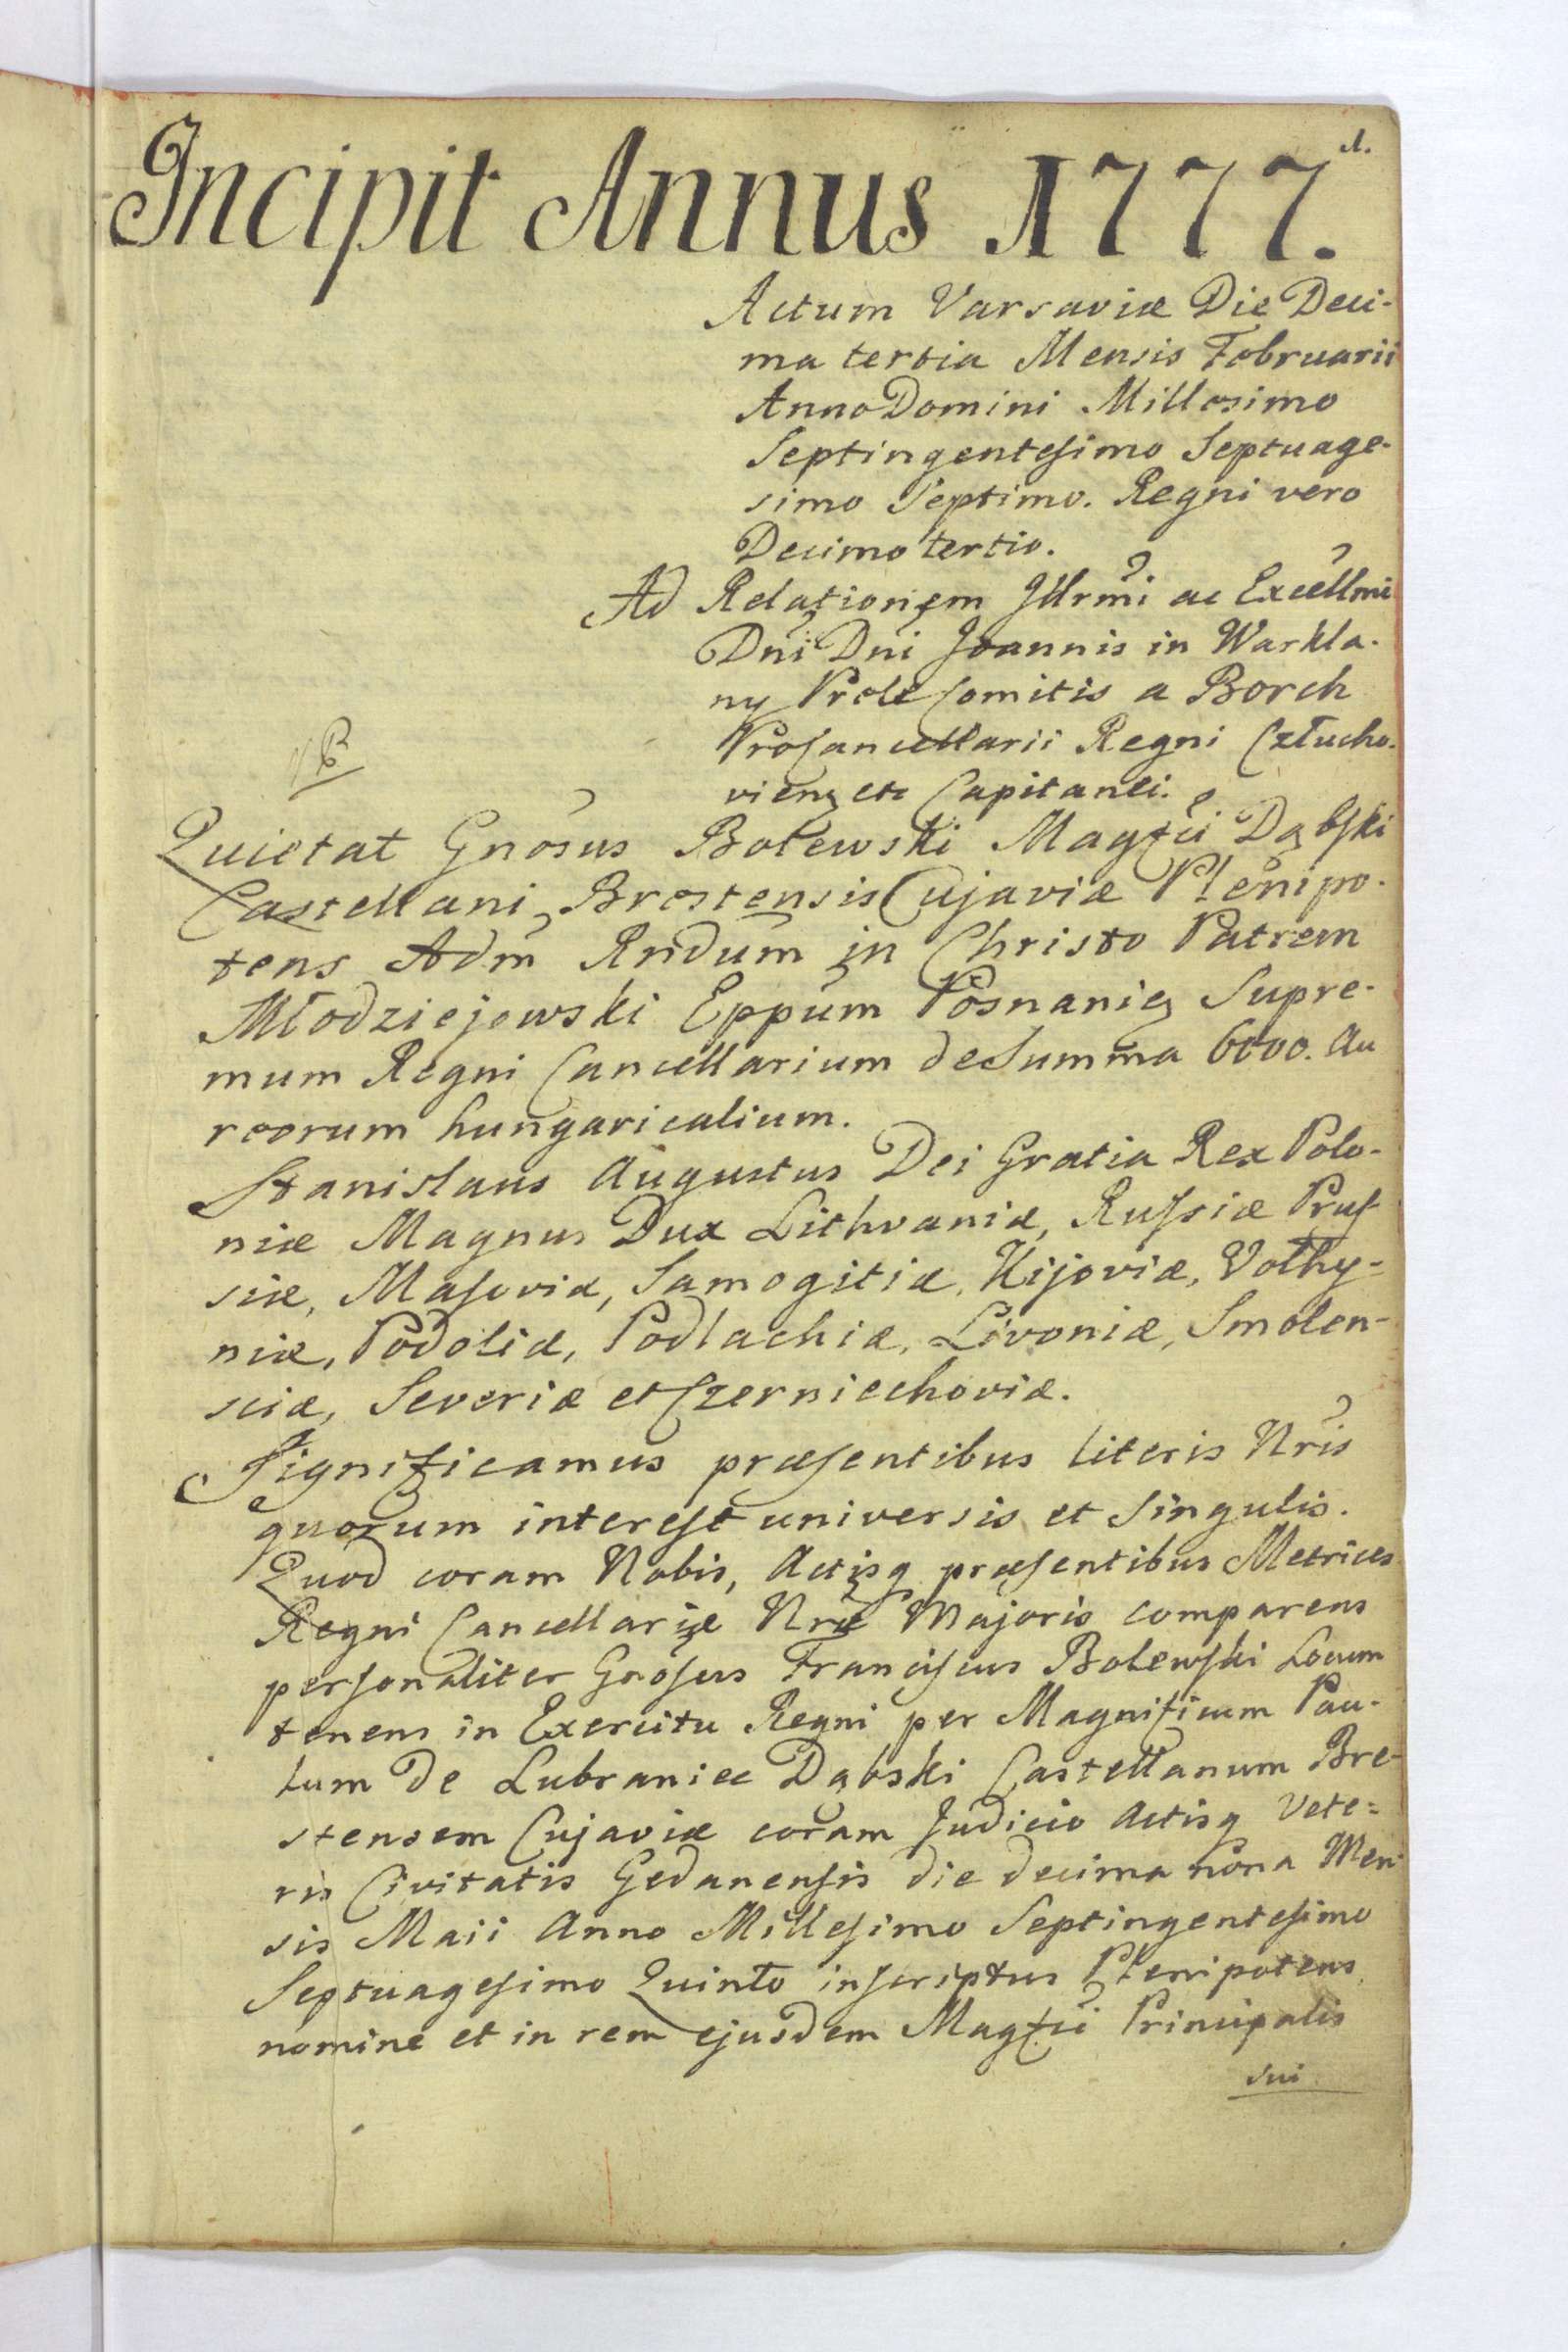 1.
Incipit Annus 1777.
Actum Varsaviæ Die Deci-
ma tertia Mensis Februarii
Anno Domini Millesimo
Septingentesimo Septuage-
simo Septimo. Regni vero
Decimo tertio.
Ad Relationem Illrmi ac Excellmi
Dni Dni Joannis in Warkla-
ny Prele Comitis a Borch
ProCancellarii Regni Człucho-
vien etc Capitanei.
Quietat Gnosus Bolewski Magfci Dąbski
Castellani Brestensis Cujaviæ Plenipo-
tens Adm Rndum in Christo Patrem
Młodziejowski Eppum Posnanię Supre-
mum Regni Cancellarium de Summa 6000. Au
reorum hungaricalium.
Stanislaus Augustus Dei Gratia Rex Polo-
niæ Magnus Dux Lithvaniæ, Russiæ Prus-
siæ, Masoviæ, Samogitiæ, Kijoviæ, Volhy-
niæ, Podoliæ, Podlachiæ, Livoniæ, Smolen-
sciæ, Severiæ et Czerniechoviæ.
Significamus præsentibus literis Nris
quorum interest universis et singulis.
Quod coram Nobis, Actisq præsentibus Metrices
Regni Cancellariæ Nræ Majoris comparens
personaliter Gnosus Franciscus Bolewski Locum
tenens in Exercitu Regni per Magnificum Pau-
lum de Lubraniec Dąbski Castellanum Bre-
stensem Cujaviæ coram Judicio Actisq Vete=
ris Civitatis Gedanensis die decima nona Men-
sis Maii Anno Millesimo Septingentesimo
Septuagesimo Quinto inscriptus Plenipotens
nomine et in rem ejusdem Magfci Principalis
sui